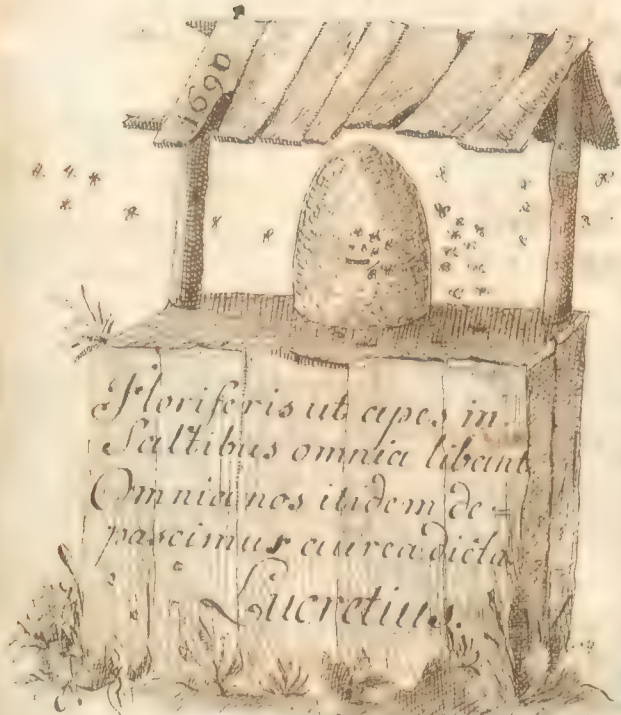 1690
Floriferis ut apes in
Saltibus omnia libant
Omnia nos itidem de=
pascimur aurea dicta
Lucretius.